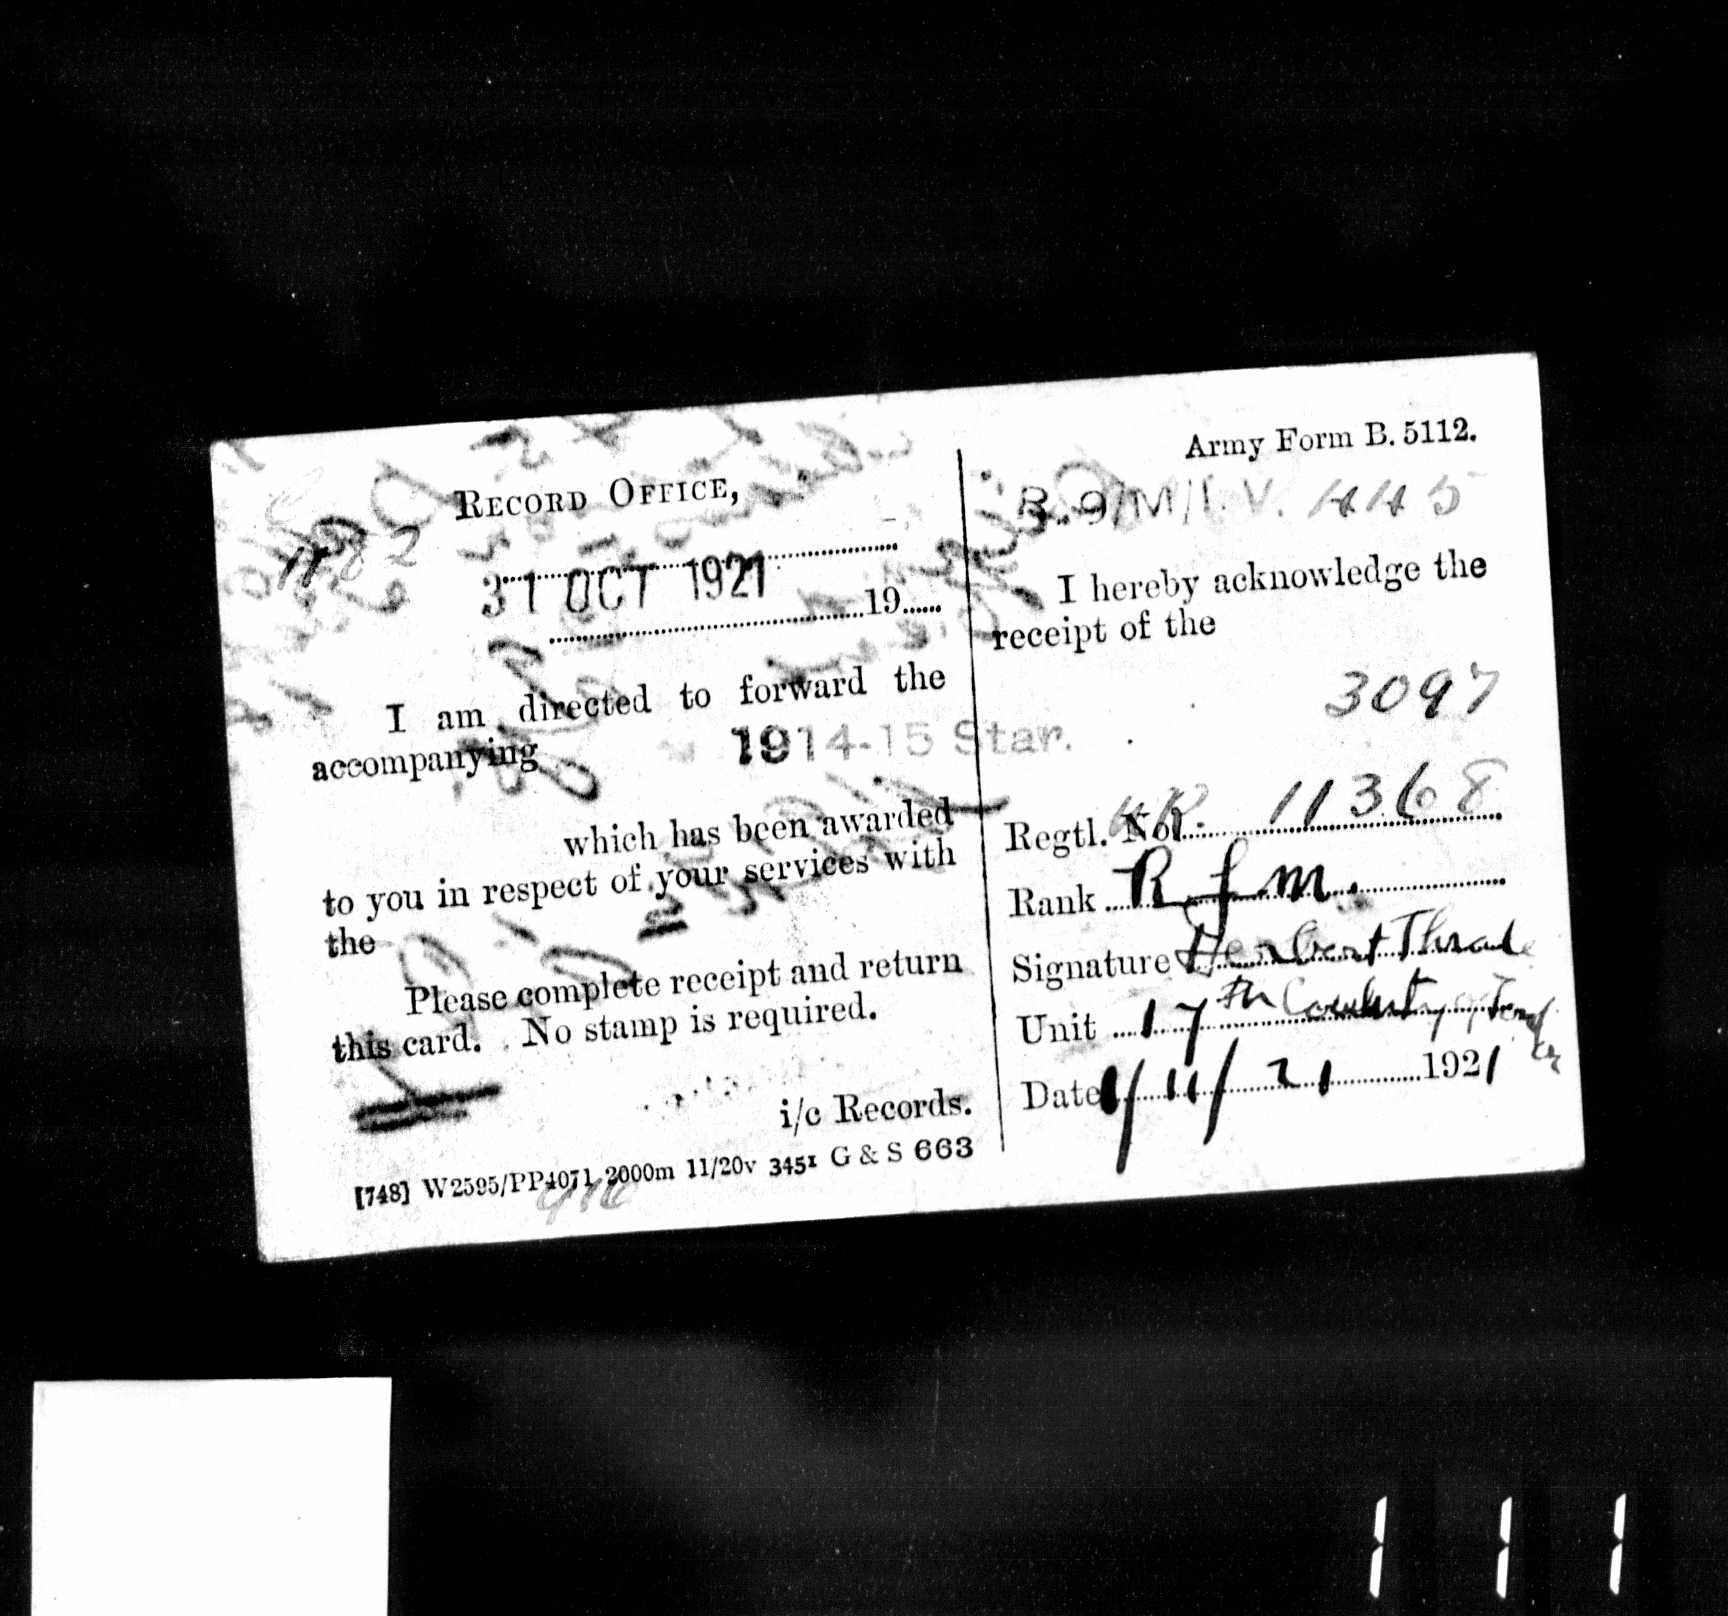 RECORD OFFICE,
1182
31 OCT 1921
19
I am directed to forward the
accompanying
1914-15 Star.
which has been awarded
to you in respect of your services with
the
Please complete receipt and return
this card. No stamp is required.
i/c Records.
[748] W2595/PP4071 2000m 11/20v 3451 G & S 663
Army Form B. 5112.
R.9/M/I.V. 445
I hereby acknowledge the
receipt of the
3097
Regtl. No. 11368
Rank Rfm.
Signature Herbert
Unit 17th County of
Date 1/11/21 1921
111